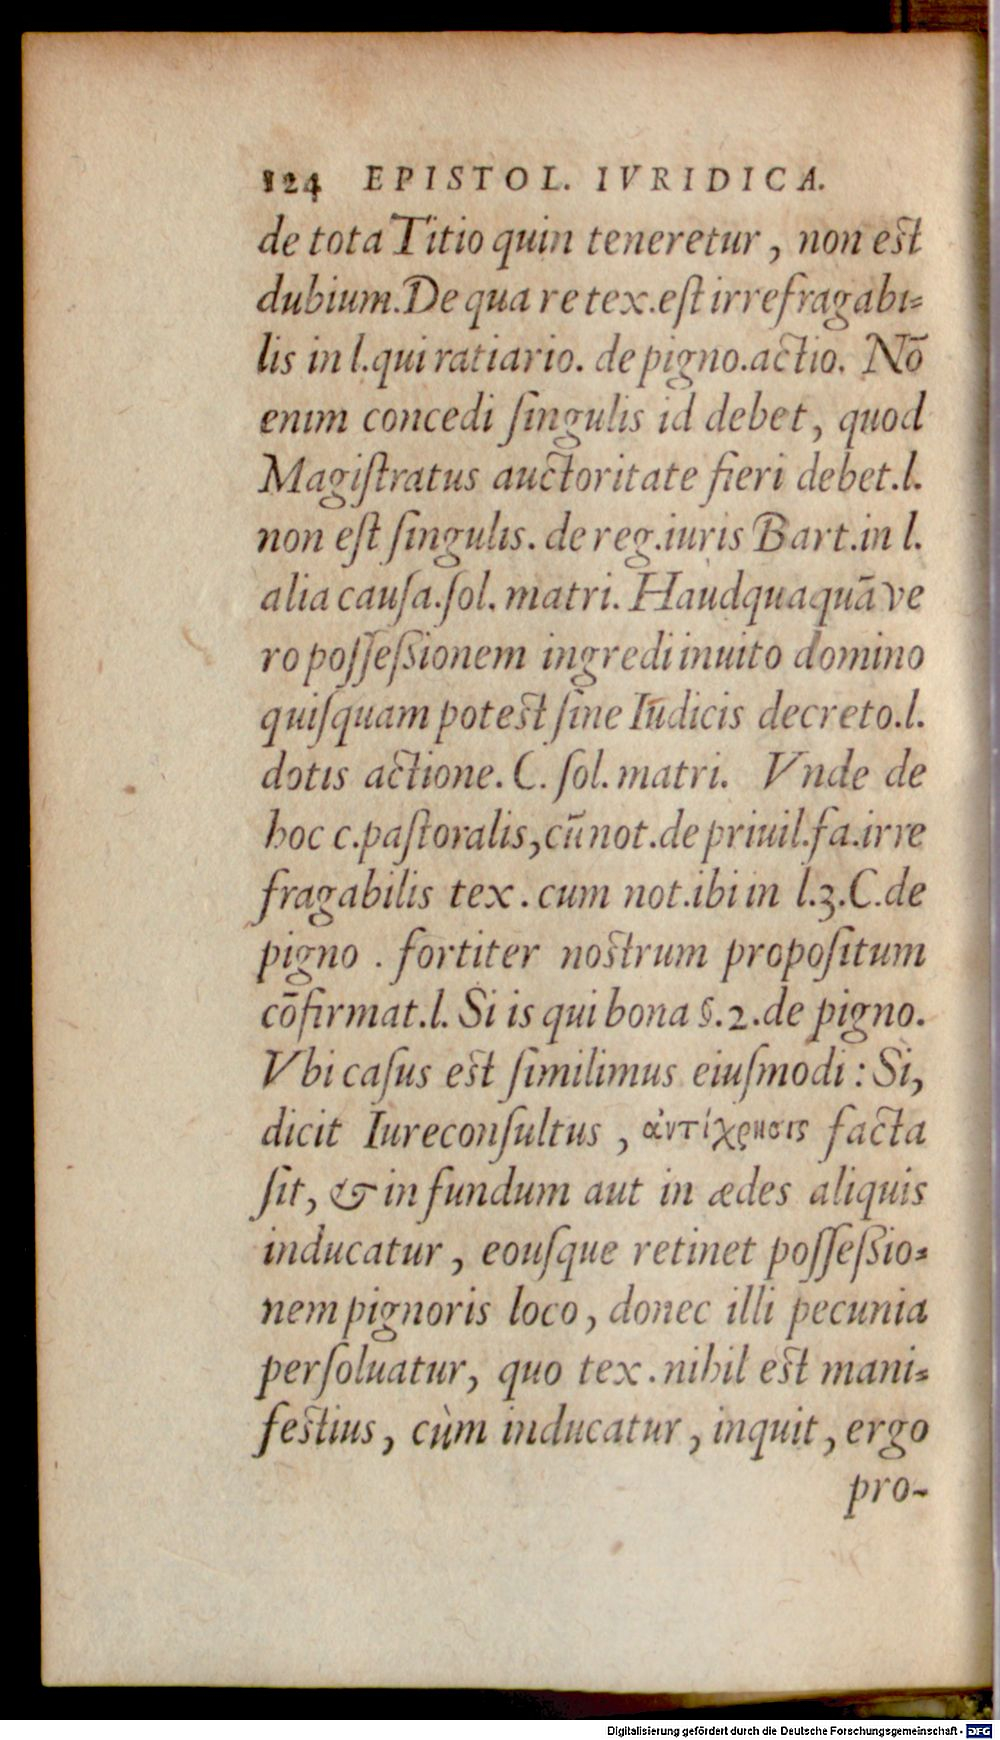 124 EPISTOL. IVRIDICA.
de tota Titio quin teneretur, non est
dubium. De qua re tex. eſt irrefragabi-
lis in l. qui ratiario. de pigno. actio. Nō
enim concedi ſingulis id debet, quod
Magiſtratus auctoritate fieri debet. l.
non eſt ſingulis. de reg. iuris Bart. in l.
alia cauſa. ſol. matri. Haudquaquā ve
ro poſſeßionem ingredi inuito domino
quiſquam potest ſine Iudicis decreto. l.
dotis actione. C. ſol. matri. Vnde de
hoc c. paſtoralis, cū not. de priuil. fa. irre
fragabilis tex. cum not. ibi in l. 3. C. de
pigno. fortiter nostrum propoſitum
cōfirmat. l. Si is qui bona §. 2. de pigno.
Vbi caſus est ſimilimus eiuſmodi: Si,
dicit Iureconſultus, ἀντίχρησις facta
ſit, & in fundum aut in ædes aliquis
inducatur, eouſque retinet poſſeßio-
nem pignoris loco, donec illi pecunia
perſoluatur, quo tex. nihil est mani-
festius, cùm inducatur, inquit, ergo
pro-
Digitalisierung gefördert durch die Deutsche Forschungsgemeinschaft - DFG